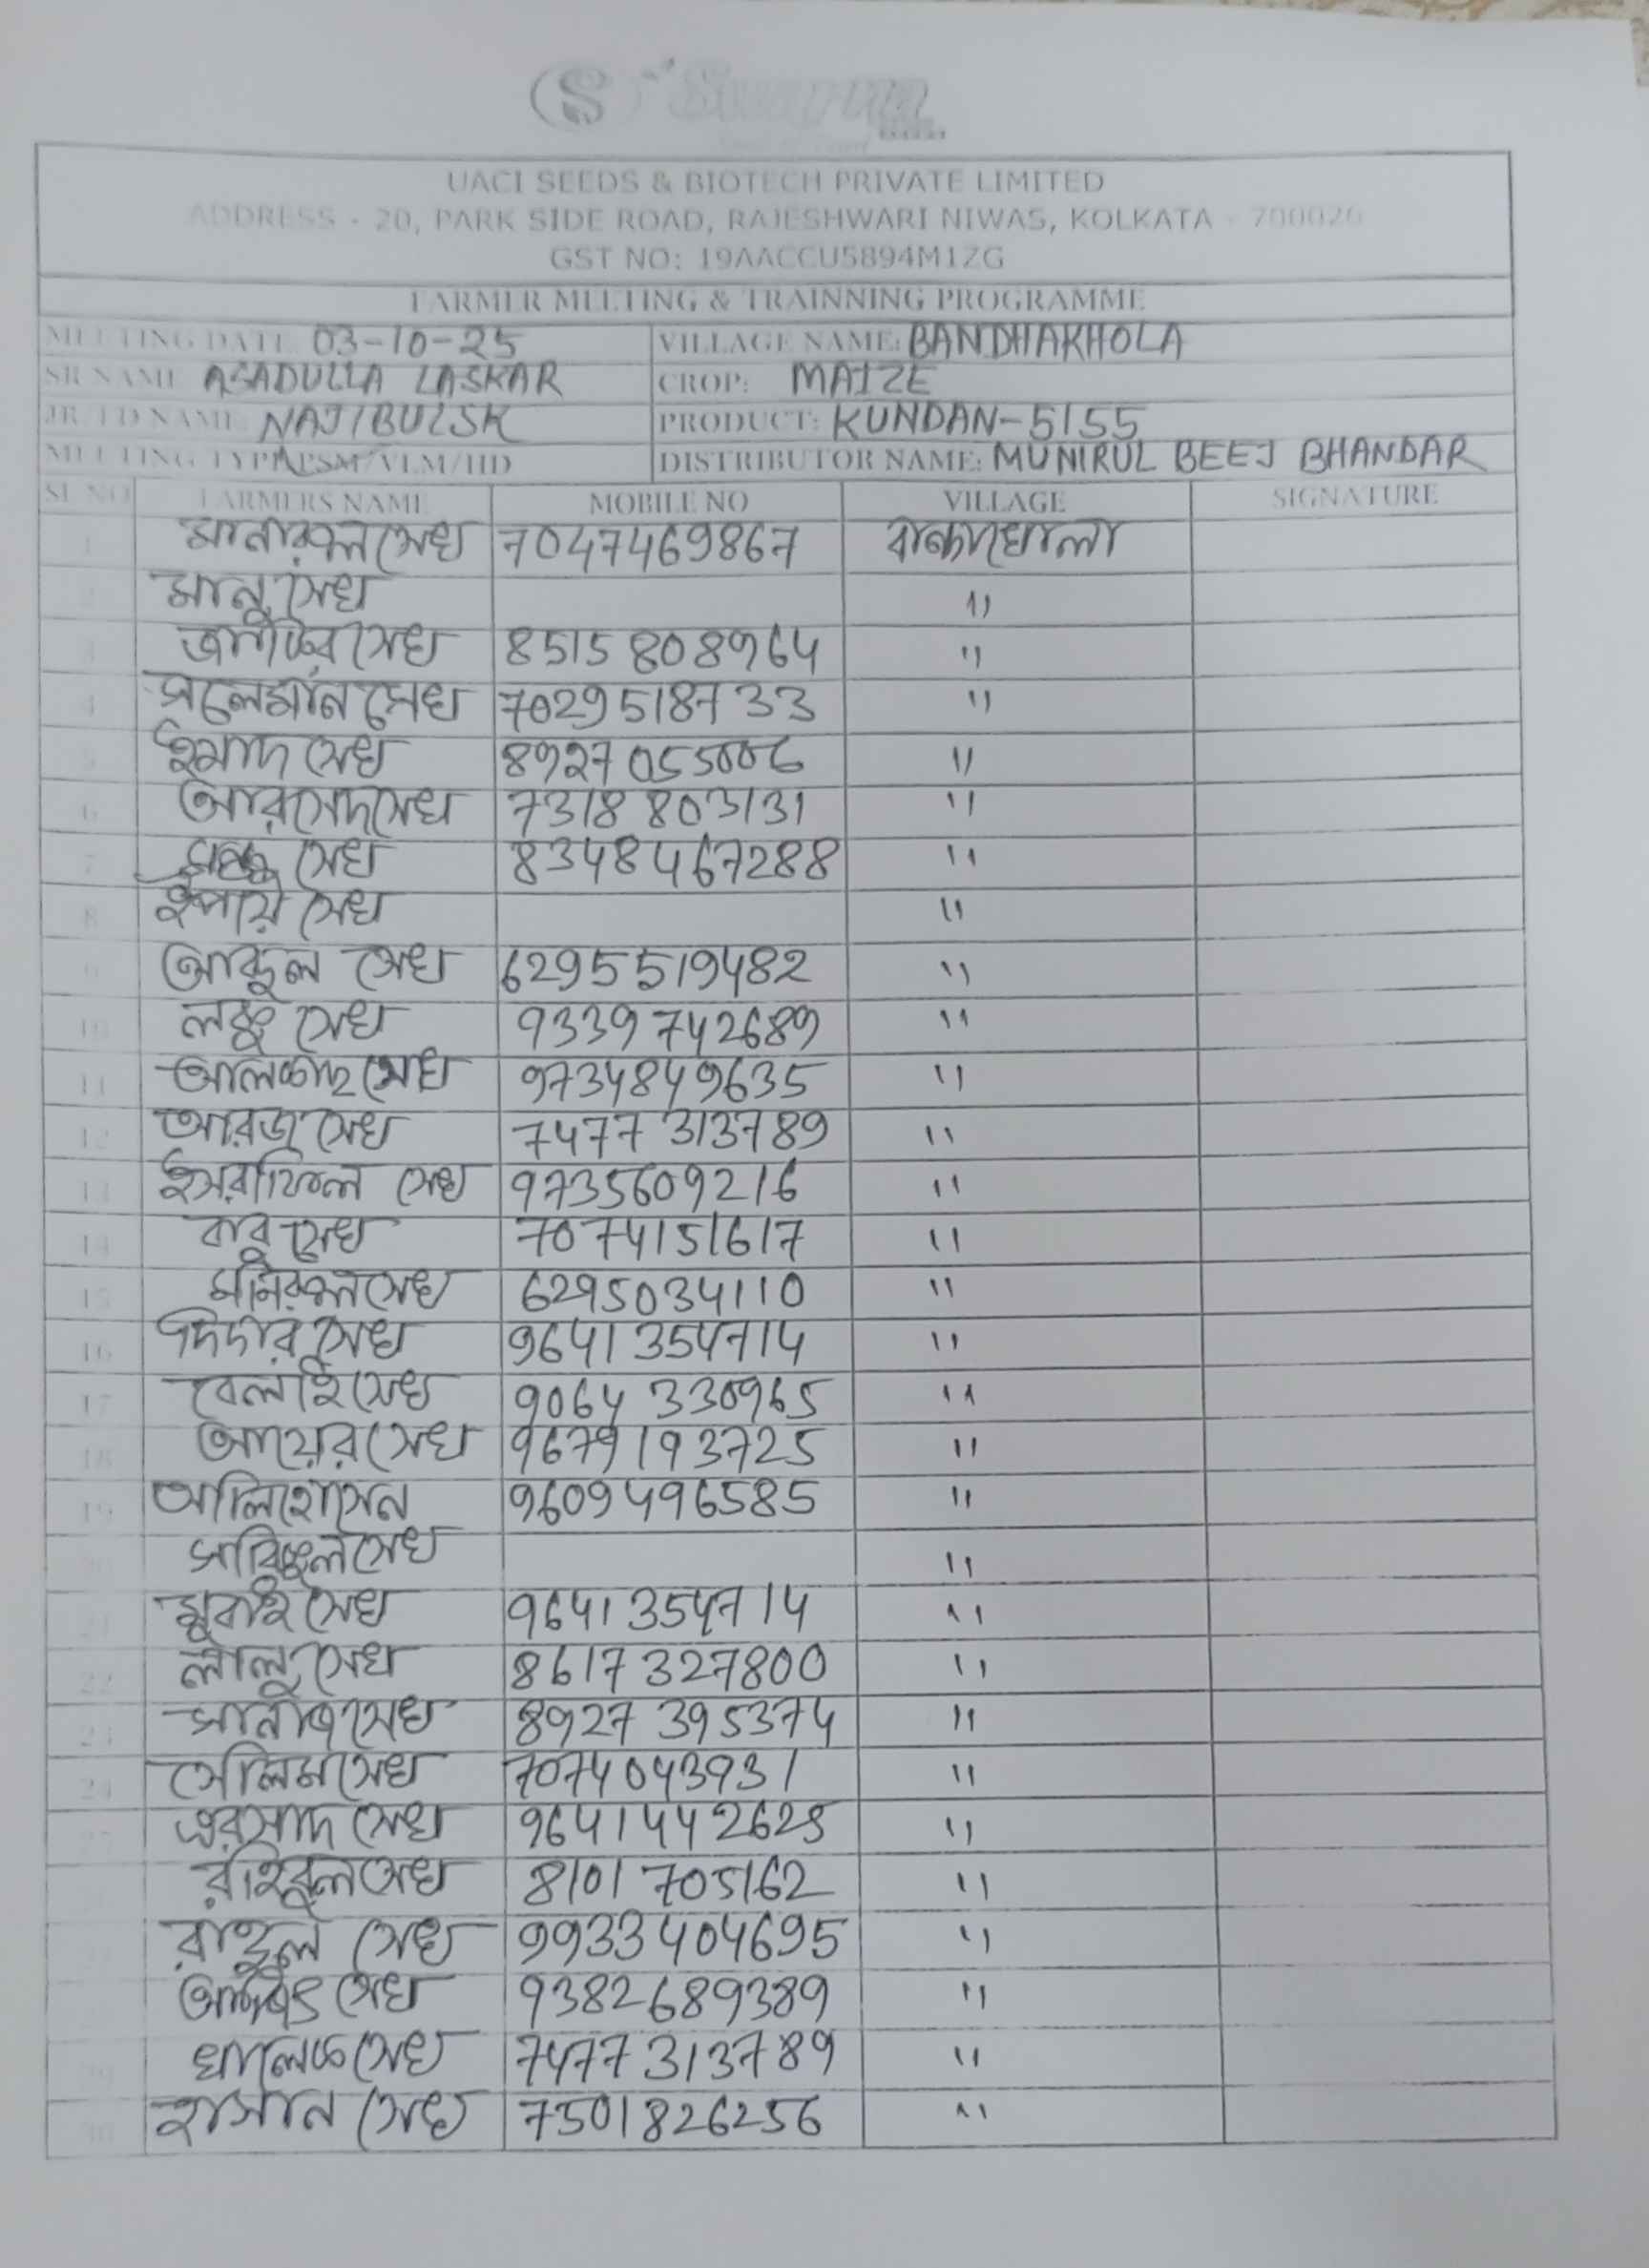 S Swarna
UACI SEEDS & BIOTECH PRIVATE LIMITED
ADDRESS - 20, PARK SIDE ROAD, RAJESHWARI NIWAS, KOLKATA - 700026
GST NO: 19AACCU5894M1ZG
FARMER MEETING & TRAINNING PROGRAMME
MEETING DATE 03-10-25 VILLAGE NAME: BANDHAKHOLA
SR NAME ASADULLA LASKAR CROP: MAIZE
JR. NAME NAJIBUL SK PRODUCT: KUNDAN-5155
MEETING TYPE PSM/VLM/HD DISTRIBUTOR NAME: MUNIRUL BEEJ BHANDAR
SL NO FARMERS NAME MOBILE NO VILLAGE SIGNATURE
1 সেখ 7047469867
2 মানু সেখ "
3 সেখ 8515808964 "
4 সলেমান সেখ 7029518733 "
5 ইমাদ সেখ 8927055006 "
6 আরসেদ সেখ 7318803131 "
7 সেখ 8348467288 "
8 সেখ "
9 আব্দুল সেখ 6295519482 "
10 সেখ 9339742689 "
11 সেখ 9734849635 "
12 আরজু সেখ 7477313789 "
13 ইসরাফিল সেখ 9735609216 "
14 বাবু সেখ 7074151617 "
15 মনিরুল সেখ 6295034110 "
16 দিদার সেখ 9641354714 "
17 সেখ 9064330965 "
18 আয়ের সেখ 9679193725 "
19 আলিহোসেন 9609496585 "
সেখ "
সেখ 9641354714 "
22 লালু সেখ 8617327800 "
23 সেখ 8927395374 "
24 সেলিম সেখ 7074043931 "
এরসাদ সেখ 9641442625 "
সেখ 8101705162 "
রাহুল সেখ 9933404695 "
সেখ 9382689389 "
29 খালেক সেখ 7477313789 "
30 হাসান সেখ 7501826256 "